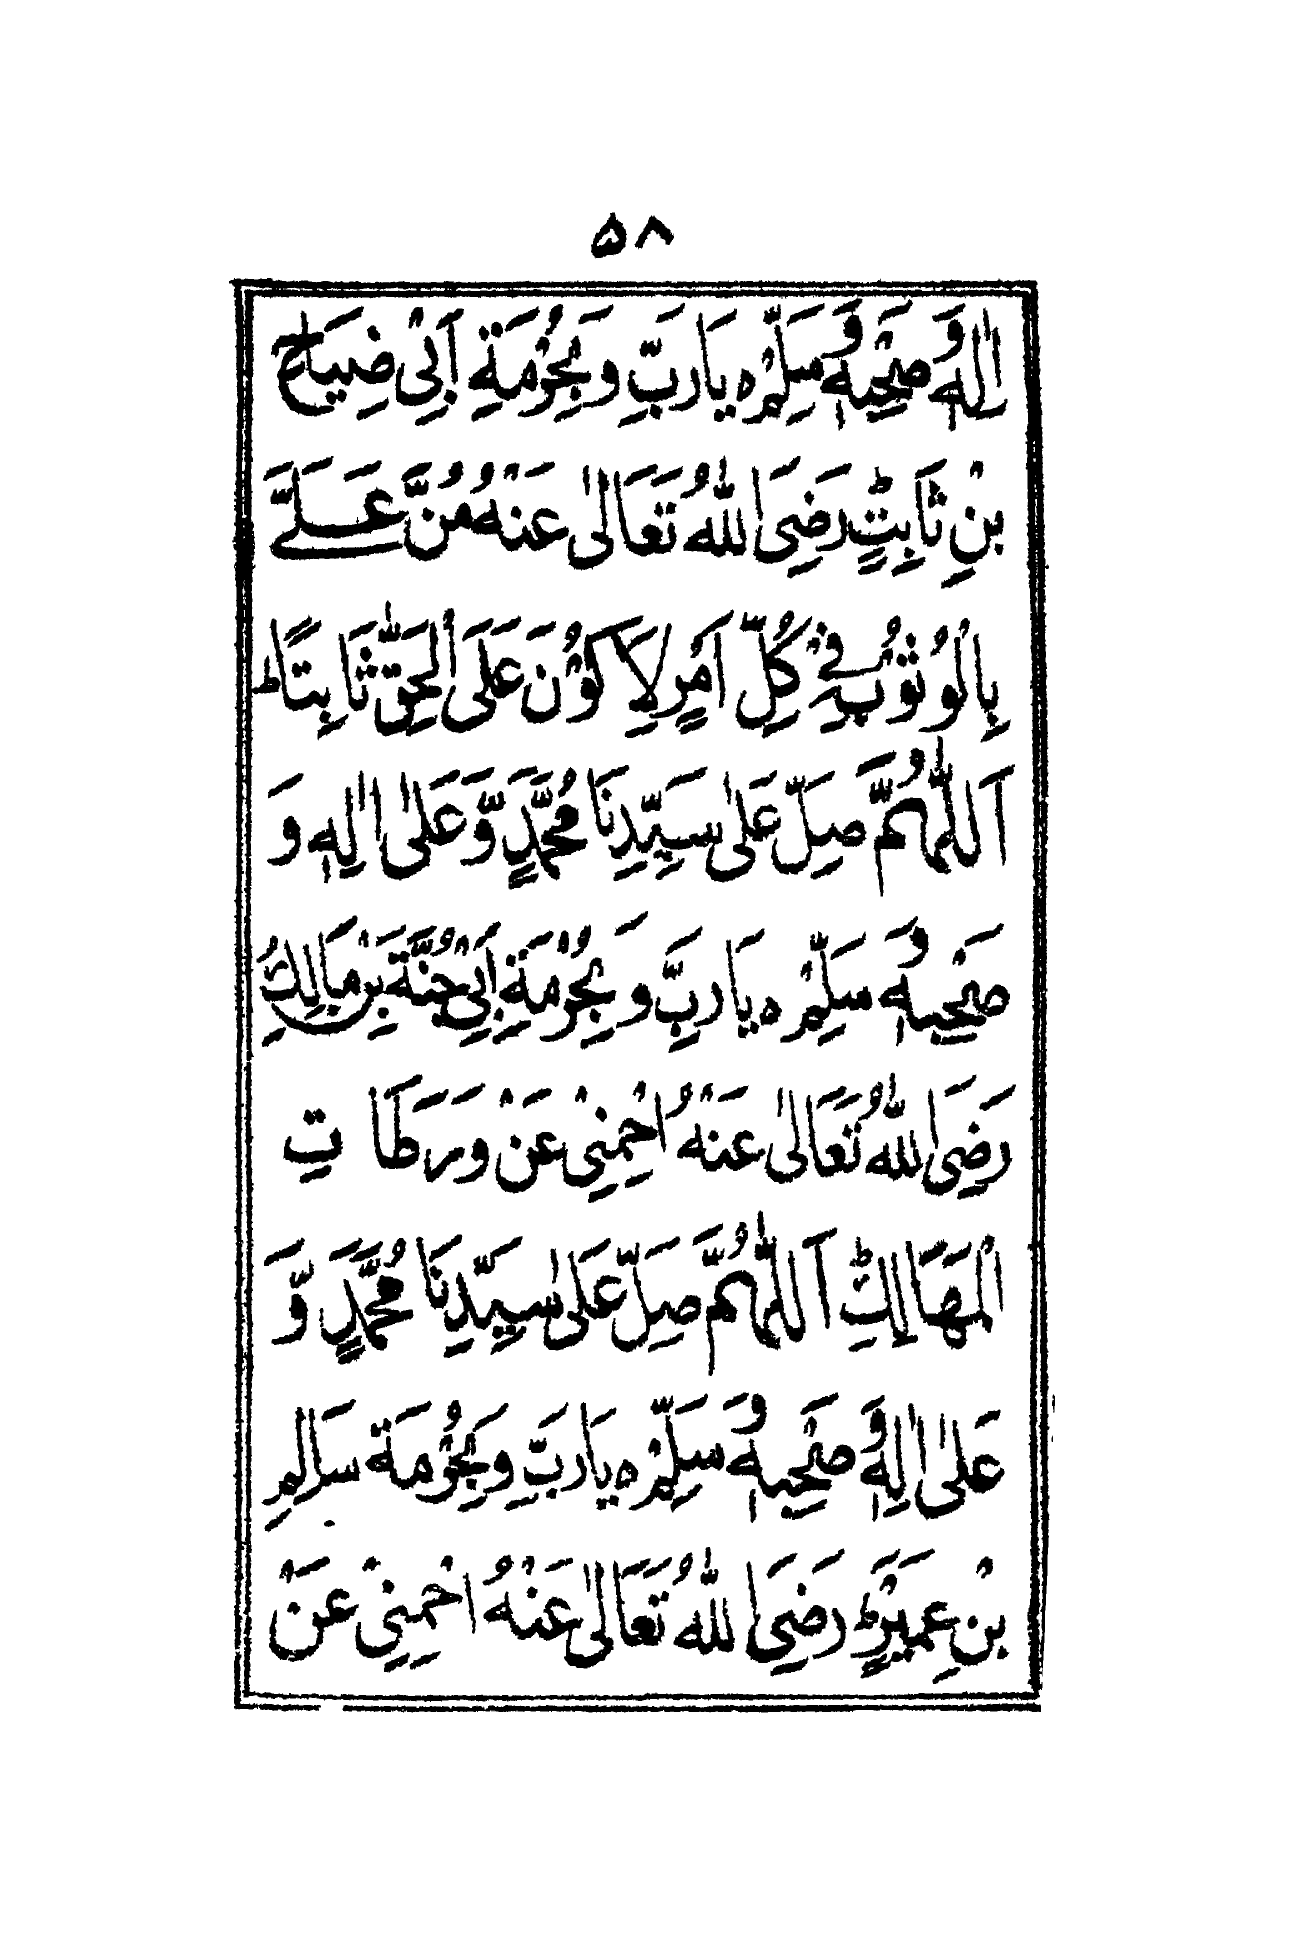 ۵۸
اٰلِهٖ وَصَحْبِهٖ وَسَلِّمْ ہ يَا رَبِّ وَبِحُرْمَةِ اَبِیْ ضِيَاحِ
بْنِ ثَابِتٍؓ رَضِیَ اللّٰهُ تَعَالٰی عَنْهُ مُنَّ عَلَیَّ
بِالْوُثُوْبِ فِیْ كُلِّ اَمْرٍ لِاَكُوْنَ عَلَی الْحَقِّ ثَابِتًا ؕ
اَللّٰهُمَّ صَلِّ عَلٰی سَيِّدِنَا مُحَمَّدٍ وَّعَلٰی اٰلِهٖ وَ
صَحْبِهٖ وَسَلِّمْ ہ يَا رَبِّ وَبِحُرْمَةِ اَبِیْ حُنَّةَ بْنِ مَالِكٍؓ
رَضِیَ اللّٰهُ تَعَالٰی عَنْهُ احْمِنِیْ عَنْ وَرَطَاتِ
الْمَهَالِكِ ؕ اَللّٰهُمَّ صَلِّ عَلٰی سَيِّدِنَا مُحَمَّدٍ وَّ
عَلٰی اٰلِهٖ وَصَحْبِهٖ وَسَلِّمْ ہ يَا رَبِّ وَبِحُرْمَةِ سَالِمِ
بْنِ عُمَيْرٍؓ رَضِیَ اللّٰهُ تَعَالٰی عَنْهُ احْمِنِیْ عَنْ